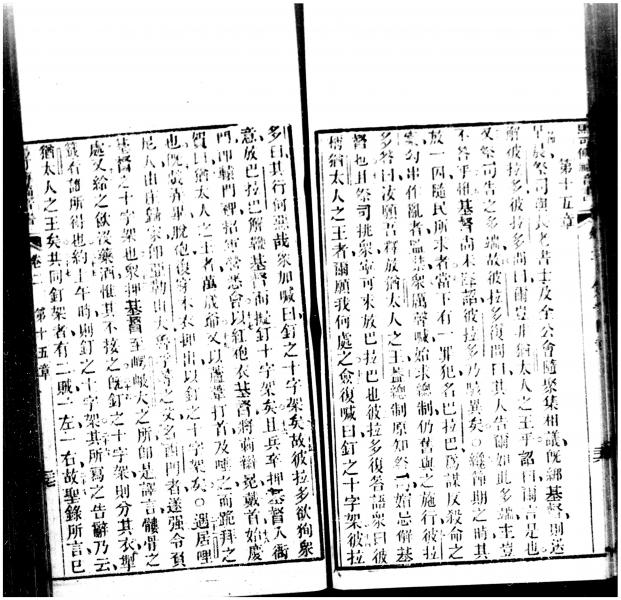 第十五章
早晨祭司與民老書士及全公會隨聚集相議旣綁基督則送
解彼拉多彼拉多尚曰爾豈非猶太人之王乎詔曰爾言是也
又祭司告之多端故彼拉多復問曰其人告爾如此多端豈
不答乎惟基督尚未答語彼拉多乃詫異矣○維節期之時其
放一囚隨民所求者當下有一罪犯名巴拉巴爲謀反殺命之
案勾串作亂者監禁衆厲聲喊始求總制仍舊與之施行彼拉
多答曰汝願吾釋放猶太人之王蓋總制原知祭司妒忌解基
督也且祭司挑衆寧可求放巴拉巴也彼拉多復答語衆曰彼
稱猶太人之王者爾願我何處之僉復喊曰釘之十字架彼拉
多曰其行何惡哉衆加喊曰釘之十字架矣故彼拉多欲狥衆
意放巴拉巴解鞭基督而擬釘十字架矣且兵卒押基督入衙
門卽轅門裡招齊營悉合以紅袍衣基督將荊棘冕戴首始慶
賀曰猶太人之王者萬歲爺又以蘆葦打首及唾之而跪拜之
也旣戲弄畢脫袍復穿本衣押出以釘之十字架矣○遇居哩
尼人由庄歸家卽亞勒山大魯孚等之父名西門者遂强令負
基督之十字架也衆押基督至大之所卽是譯言髏骨之
處又給之飲沒藥酒惟其不接之旣釘之十字架則分其衣掣
籤看誰所得也約上午時則釘之十字架其所寫之告辭乃云
猶太人之王矣其同釘架者有二賊一左一右故聖錄所言已
第十五章